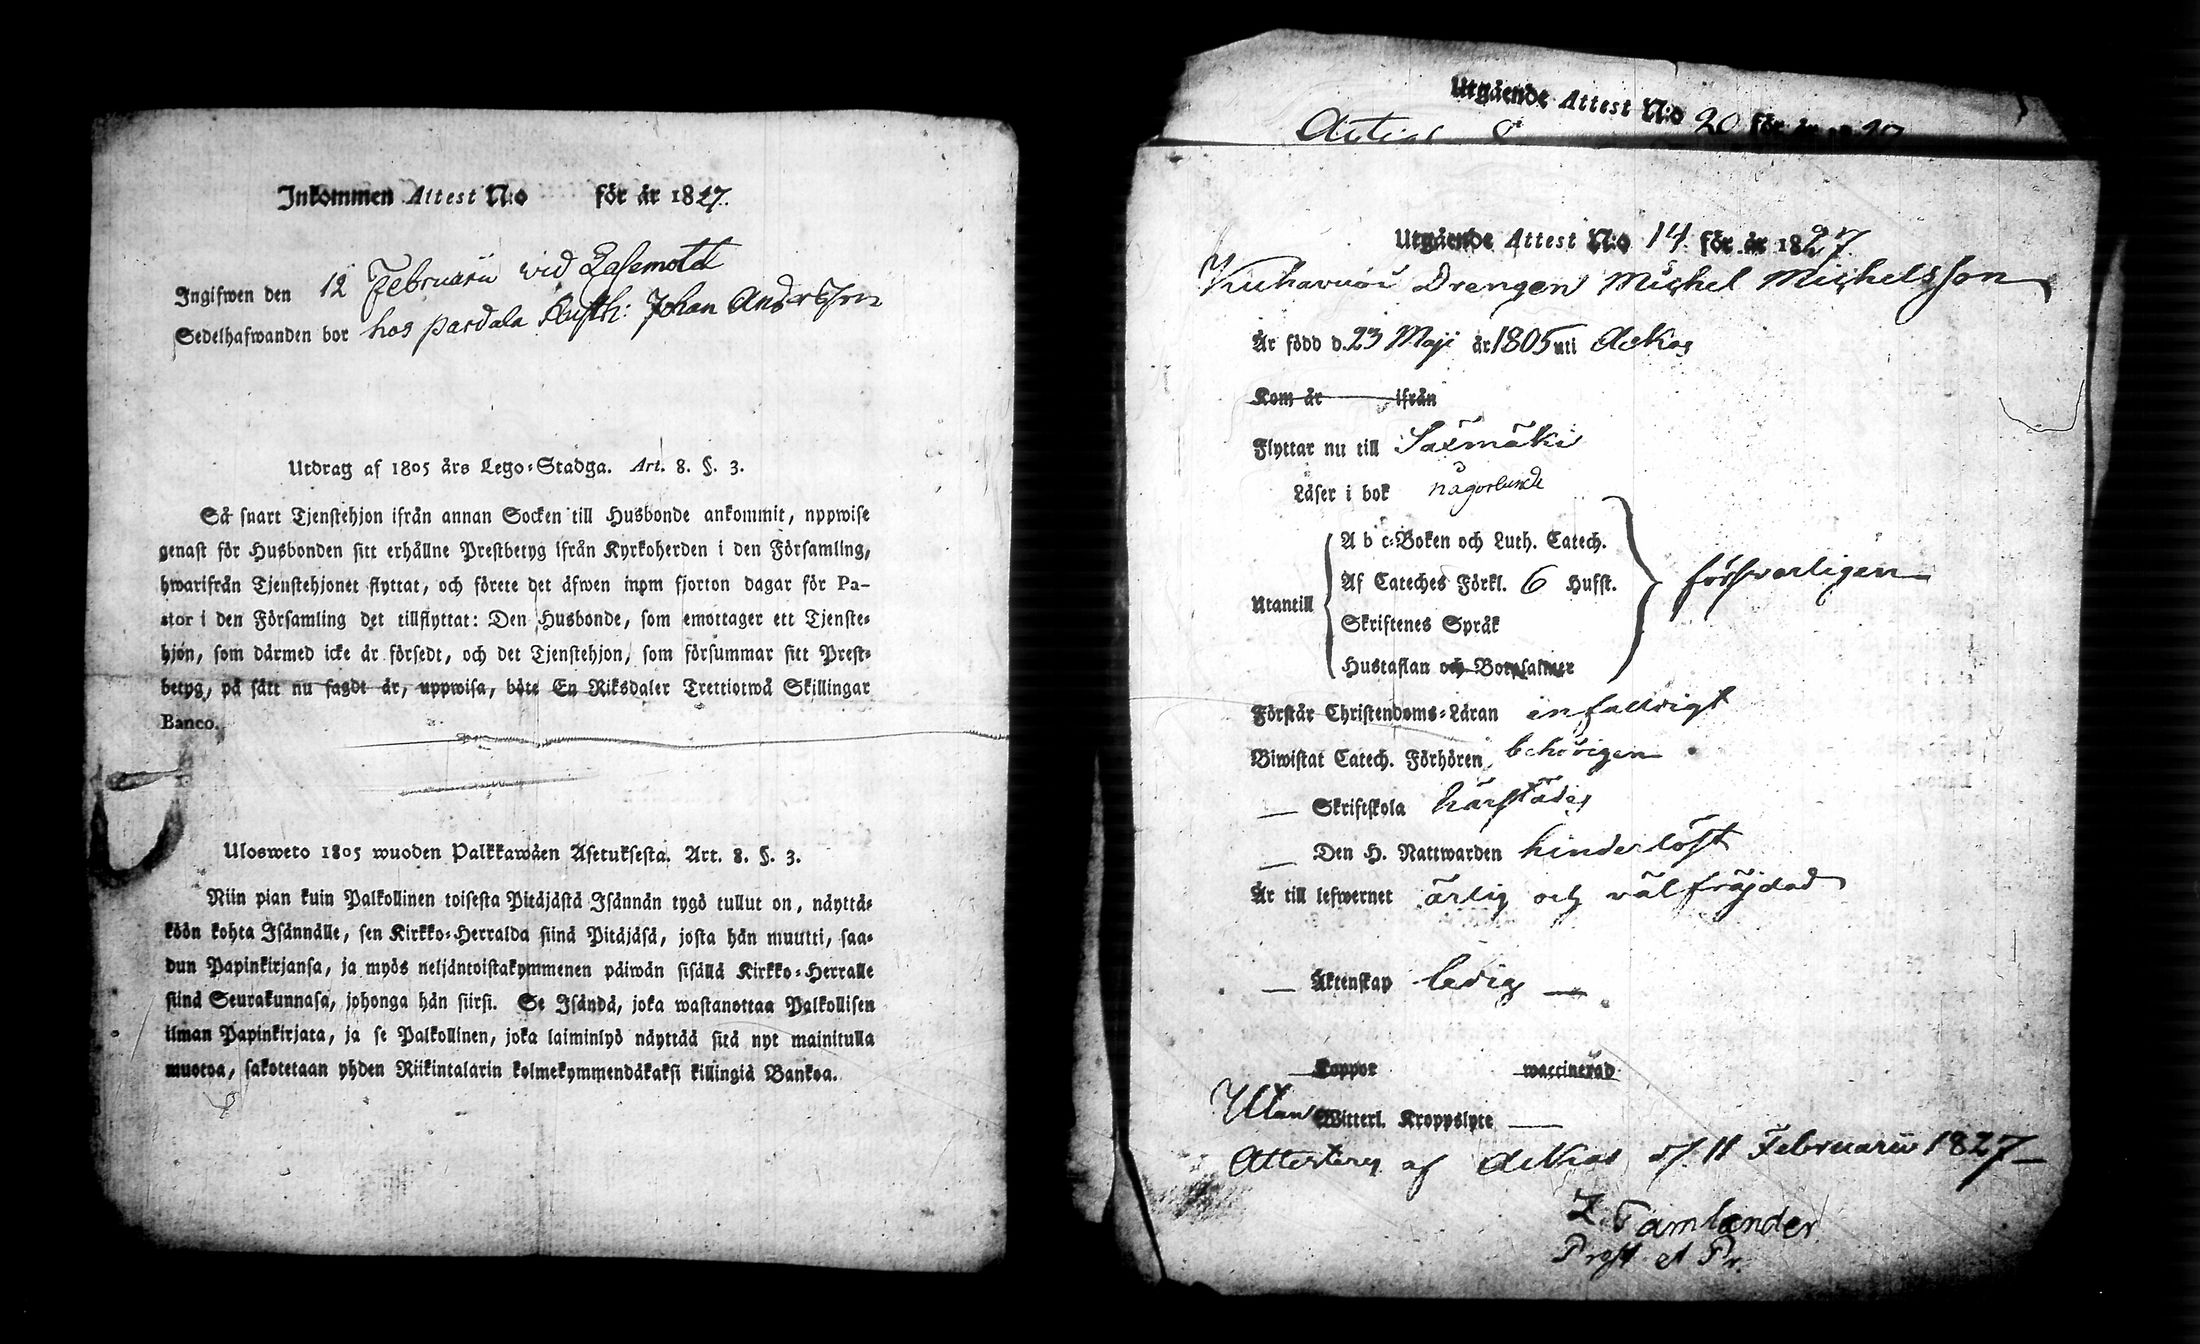 Inkommen Attest N:o för år 1827.
Ingifwen den 12 Februarii vid
Sedelhafwanden bor hos pardala Rusth: Johan Andersson
Utdrag af 1805 års Lego-Stadga. Art. 8. §. 3.
Så snart Tjenstehjon ifrån annan Socken till Husbonde ankommit, nppwise
genast för Husbonden sitt erhållne Prestbetyg ifrån Kyrkoherden i den Församling,
hwarifrån Tjenstehjonet flyttat, och förete det äfwen inom fjorton dagar för Pa-
stor i den Församling det tillflyttat: Den Husbonde, som emottager ett Tjenste-
hjon, som därmed icke är försedt, och det Tjenstehjon, som försummar sitt Prest-
betyg, på sätt nu sagdt är, uppwisa, böte En Riksdaler Trettiotwå Skillingar
Banco.
Ulosweto 1805 wuoden Palkkawäen Asetuksesta. Art. 8. §. 3.
Niin pian kuin Palkollinen toisesta Pitäjästä Isännän tygö tullut on, näyttä-
köön kohta Isännälle, sen Kirkko-Herralda siinä Pitäjäsä, josta hän muutti, saa-
dun Papinkirjansa, ja myös neljäntoistakymmenen päiwän sisällä Kirkko-Herralle
siinä Seurakunnasa, johonga hän siirsi. Se Isändä, joka wastanottaa Palkollisen
ilman Papinkirjata, ja se Palkollinen, joka laiminlyö näyttää sitä nyt mainitulla
muotoa, sakotetaan yhden Riikintalarin kolmekymmendäkaksi killingiä Bankoa.
Utgående Attest N:o 20 för år 1827
Utgående Attest N:o 14 för år 1827.
Drengen Michel Michelsson
Är född d. 23 Maji år 1805 uti Ackas
Kom år ifrån
Flyttar nu till Saxmäki
Läser i bok någorlunda
Utantill
A b c-Boken och Luth. Catech.
Af Cateches Förkl. 6 Hufst.
Skriftenes Språk
Hustaflan och Botpsalmer
försvarligen
Förstår Christendoms-Läran enfalldigt
Biwistat Catech. Förhören behörigen
— Skriftskola härstädes
— Den H. Nattwarden hinderlöst
Är till lefwernet ärlig och välfräjdad
— Äktenskap ledig —
Koppor waccinerad
Utan Witterl. Kroppslyte —
Attesterar af Ackas d. 11 Februarii 1827 —
Z. Tamlander
Prost et P.